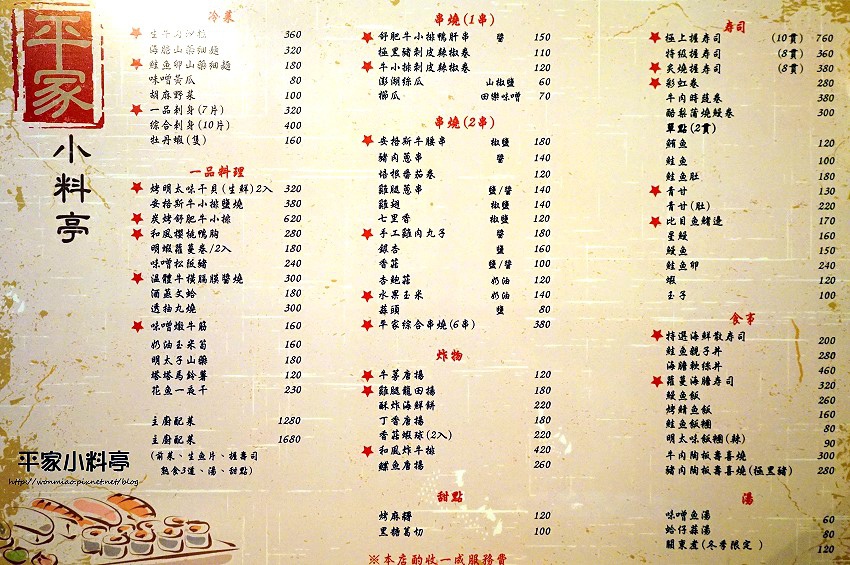 平家
小料亭
冷菜
360
海膽山藥細麵 320
鮭魚卵山藥細麵 180
味噌黃瓜 80
胡麻野菜 100
一品刺身(7片) 320
綜合刺身(10片) 400
牡丹蝦(隻) 160
一品料理
烤明太味干貝(生鮮)2入 320
安格斯牛小排鹽燒 380
炭烤舒肥牛小排 620
和風櫻桃鴨胸 280
明蝦蘿蔓卷/2入 180
味噌松阪豬 240
溫體牛橫膈膜醬燒 300
酒蒸文蛤 180
透抽丸燒 300
味噌燉牛筋 160
奶油玉米筍 160
明太子山藥 180
塔塔馬鈴薯 120
花魚一夜干 230
主廚配菜 1280
主廚配菜 1680
(前菜、生魚片、握壽司
熟食3道、湯、甜點)
平家小料亭
http://wonmiao.pixnet.net/blog
串燒(1串)
舒肥牛小排鴨肝串 醬 150
極黑豬剥皮辣椒卷 110
牛小排剥皮辣椒卷 120
澎湖絲瓜 山椒鹽 60
櫛瓜 田樂味噌 70
串燒(2串)
安格斯牛腰串 椒鹽 180
豬肉蔥串 醬 140
培根番茄卷 120
雞腿蔥串 鹽/醬 140
雞翅 椒鹽 140
七里香 椒鹽 120
手工雞肉丸子 醬 180
銀杏 鹽 160
香菇 鹽/醬 100
杏鮑菇 奶油 120
水果玉米 奶油 140
蒜頭 鹽 80
平家綜合串燒(6串) 380
炸物
牛蒡唐揚 120
雞腿龍田揚 180
酥炸海鮮餅 220
丁香唐揚 180
香菇蝦球(2入) 220
和風炸牛排 420
鰈魚唐揚 260
甜點
烤麻糬 120
黑糖葛切 100
※本店酌收一成服務費
壽司
極上握壽司 (10貫) 760
特級握壽司 (8貫) 360
炙燒握壽司 (8貫) 380
彩虹卷 280
牛肉時蔬卷 380
酪梨蒲燒鰻卷 300
單點(2貫)
鮪魚 120
鮭魚 100
鮭魚肚 180
青甘 130
青甘(肚) 220
比目魚鰭邊 170
星鰻 160
鰻魚 150
鮭魚卵 240
蝦 120
玉子 100
食事
特選海鮮散壽司 200
鮭魚親子丼 280
海膽軟絲丼 460
蘿蔓海膽壽司 320
鰻魚飯 260
烤鯖魚飯 160
鮭魚飯糰 80
明太味飯糰(辣) 90
牛肉陶板壽喜燒 300
豬肉陶板壽喜燒(極黑豬) 280
湯
味噌魚湯 60
蛤仔蒜湯 80
關東煮(冬季限定) 120